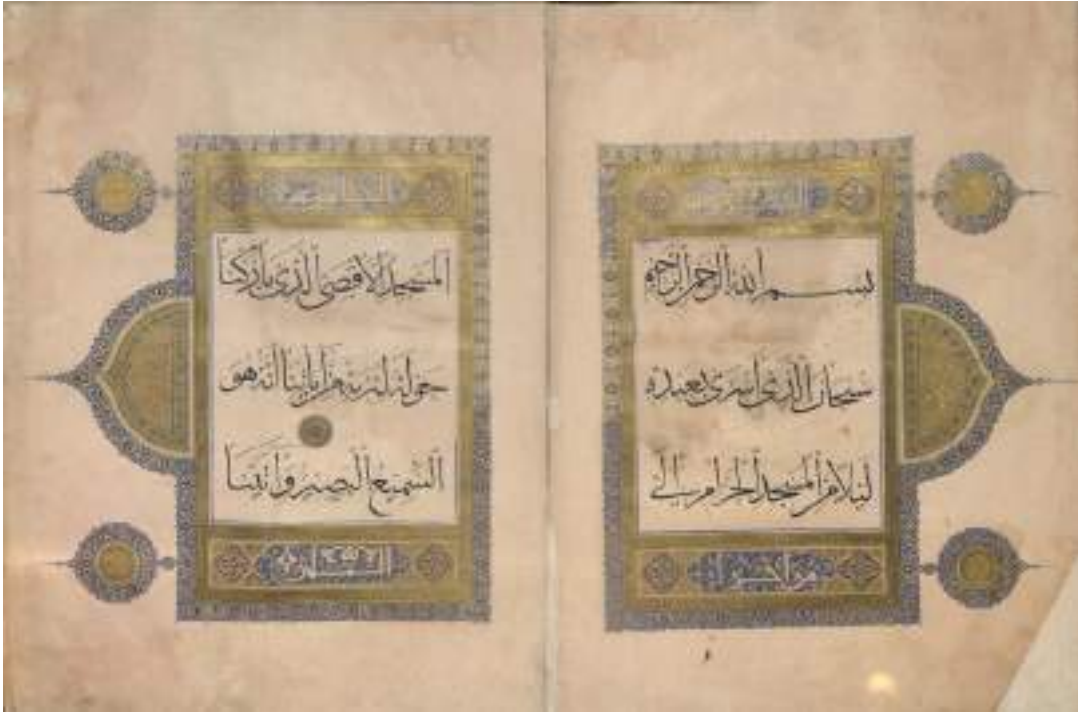 بسم الله الرحمن الرحيم
سبحان الذي اسرى بعبده
ليلا من المسجد الحرام الى
المسجد الاقصى الذى باركنا
حوله لنريه من اياتنا انه هو
السميع البصير واتينا